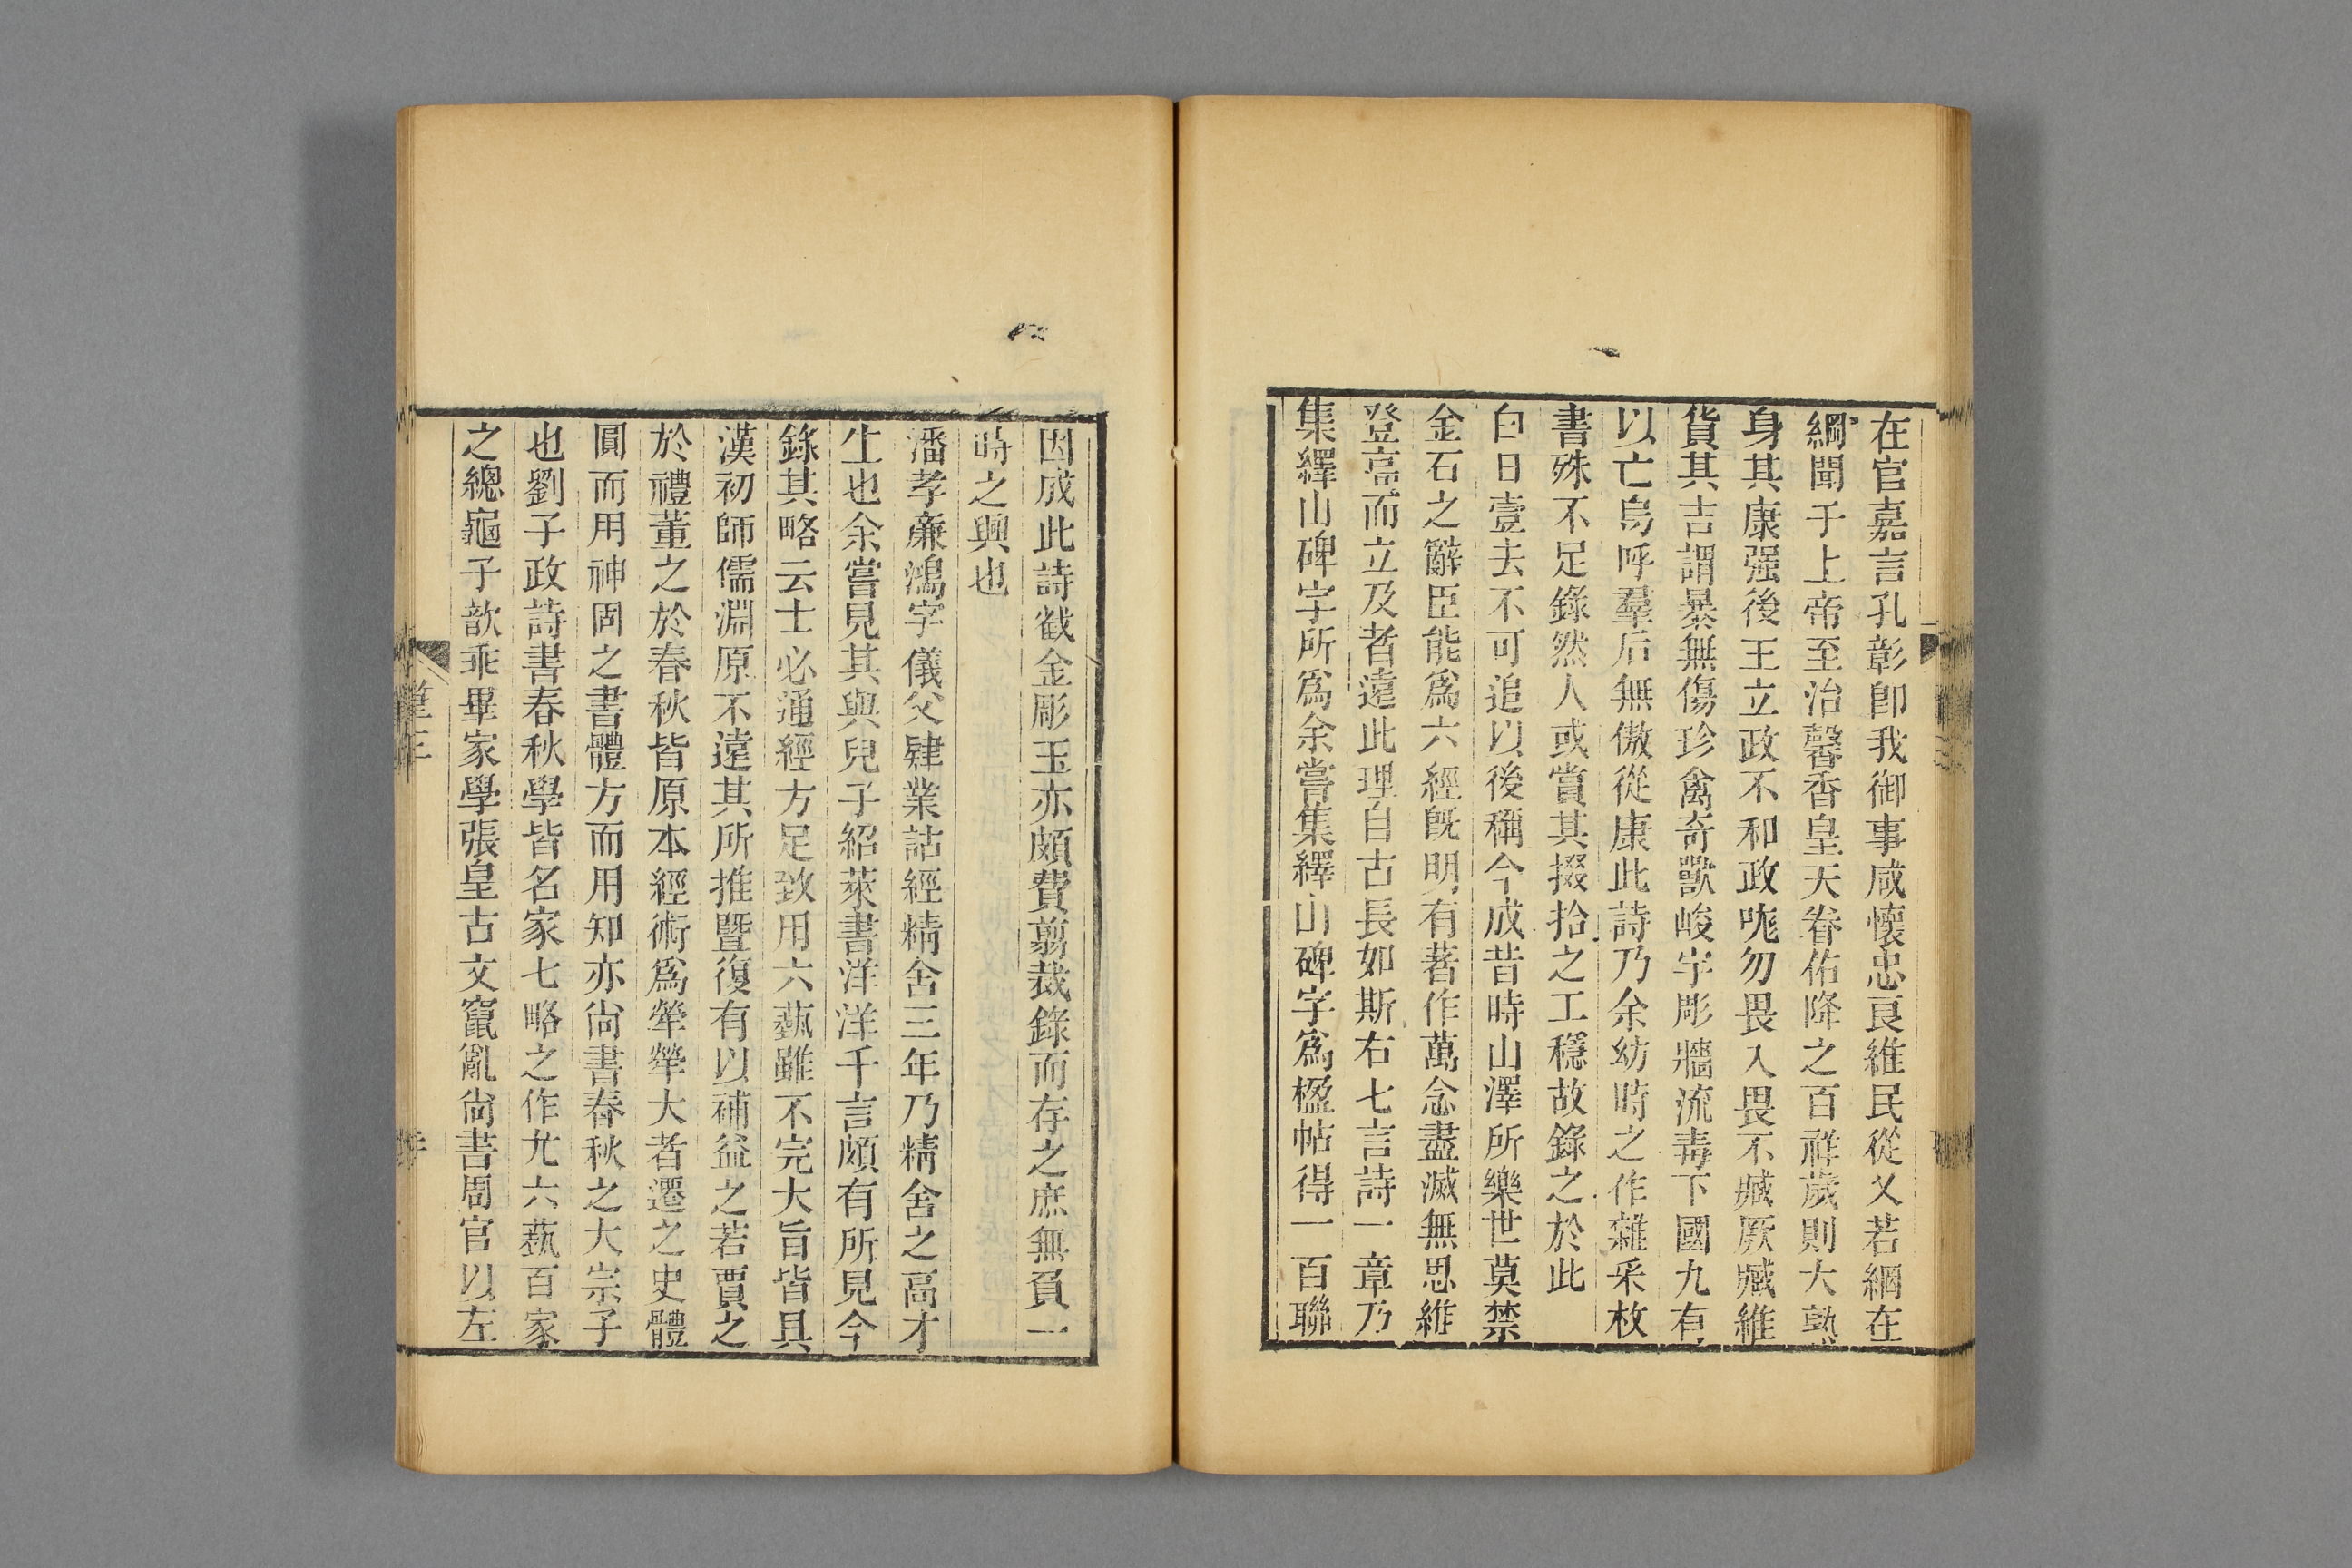 在官嘉言孔彰卽我御事咸懷忠良維民從乂若網在
綱聞于上帝至治馨香皇天眷佑降之百祥歲則大熟
身其康强後王立政不和政哤勿畏入畏不臧厥臧維
貨其吉謂暴無傷珍禽奇獸峻宇彫牆流毒下國九有
以亡烏呼羣后無傲從康此詩乃余幼時之作雜采枚
書殊不足錄然人或賞其掇拾之工穩故錄之於此
白日壹去不可追以後稱今成昔時山澤所樂世莫禁
金石之辭臣能爲六經旣明有著作萬念盡滅無思維
登高而立及者遠此理自古長如斯右七言詩一章乃
集繹山碑字所爲余嘗集繹山碑字爲楹帖得一百聯
因成此詩戳金彫玉亦頗費翦裁錄而存之庶無負一
時之興也
潘孝廉鴻字儀父肄業詁經精舍三年乃精舍之高才
生也余嘗見其與兒子紹萊書洋洋千言頗有所見今
錄其略云士必通經方足致用六蓺雖不完大旨皆具
漢初師儒淵原不遠其所推曁復有以補益之若賈之
於禮董之於春秋皆原本經術爲犖犖大者遷之史體
圓而用神固之書體方而用知亦尙書春秋之大宗子
也劉子政詩書春秋學皆名家七略之作尤六蓺百家
之總龜子歆乖畢家學張皇古文竄亂尙書周官以左
筆三